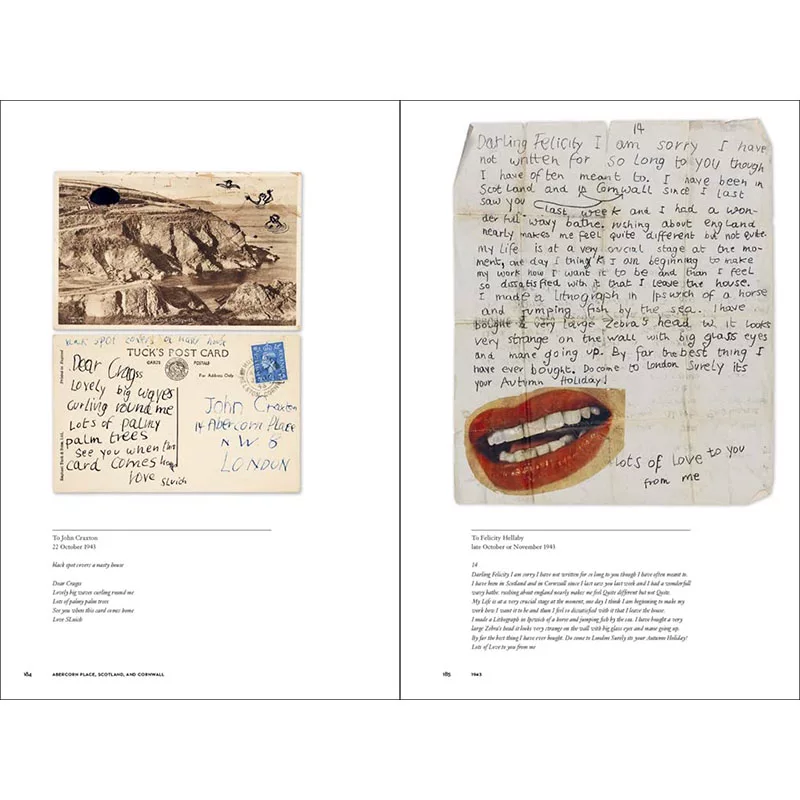 black spot covers a nasty house
TUCK'S POST CARD
CARTE POSTALE
For Address Only
Printed in England
Dear Craggs
Lovely big waves
curling round me
Lots of palmy
palm trees
See you when this
card comes home
love Sluich
John Craxton
14 Abercorn Place
N W 8
LONDON
To John Craxton
22 October 1943
black spot covers a nasty house
Dear Craggs
Lovely big waves curling round me
Lots of palmy palm trees
See you when this card comes home
Love SLuich
184 ABERCORN PLACE, SCOTLAND, AND CORNWALL
14
Darling Felicity I am sorry I have
not written for so long to you though
I have often meant to. I have been in
Scotland and in Cornwall since I last
saw you last week and I had a won-
derfull wavy bathe, rushing about england
nearly makes me feel quite different but not quite.
my Life is at a very crucial stage at the mo-
ment, one day I think I am beginning to make
my work how I want it to be and than I feel
so dissatisfied with it that I leave the house.
I made a Lithograph in Ipswich of a horse
and jumping fish by the sea. I have
bought a very large Zebra's head it looks
very strange on the wall with big glass eyes
and mane going up. By far the best thing I
have ever bought. Do come to London Surely its
your Autumn Holiday!
Lots of Love to you
from me
To Felicity Hellaby
late October or November 1943
14
Darling Felicity I am sorry I have not written for so long to you though I have often meant to.
I have been in Scotland and in Cornwall since I last saw you last week and I had a wonderfull
wavy bathe. rushing about england nearly makes me feel Quite different but not Quite.
My Life is at a very crucial stage at the moment, one day I think I am beginning to make my
work how I want it to be and than I feel so dissatisfied with it that I leave the house.
I made a Lithograph in Ipswich of a horse and jumping fish by the sea. I have bought a very
large Zebra's head it looks very strange on the wall with big glass eyes and mane going up.
By far the best thing I have ever bought. Do come to London Surely its your Autumn Holiday!
Lots of Love to you from me
185 1943